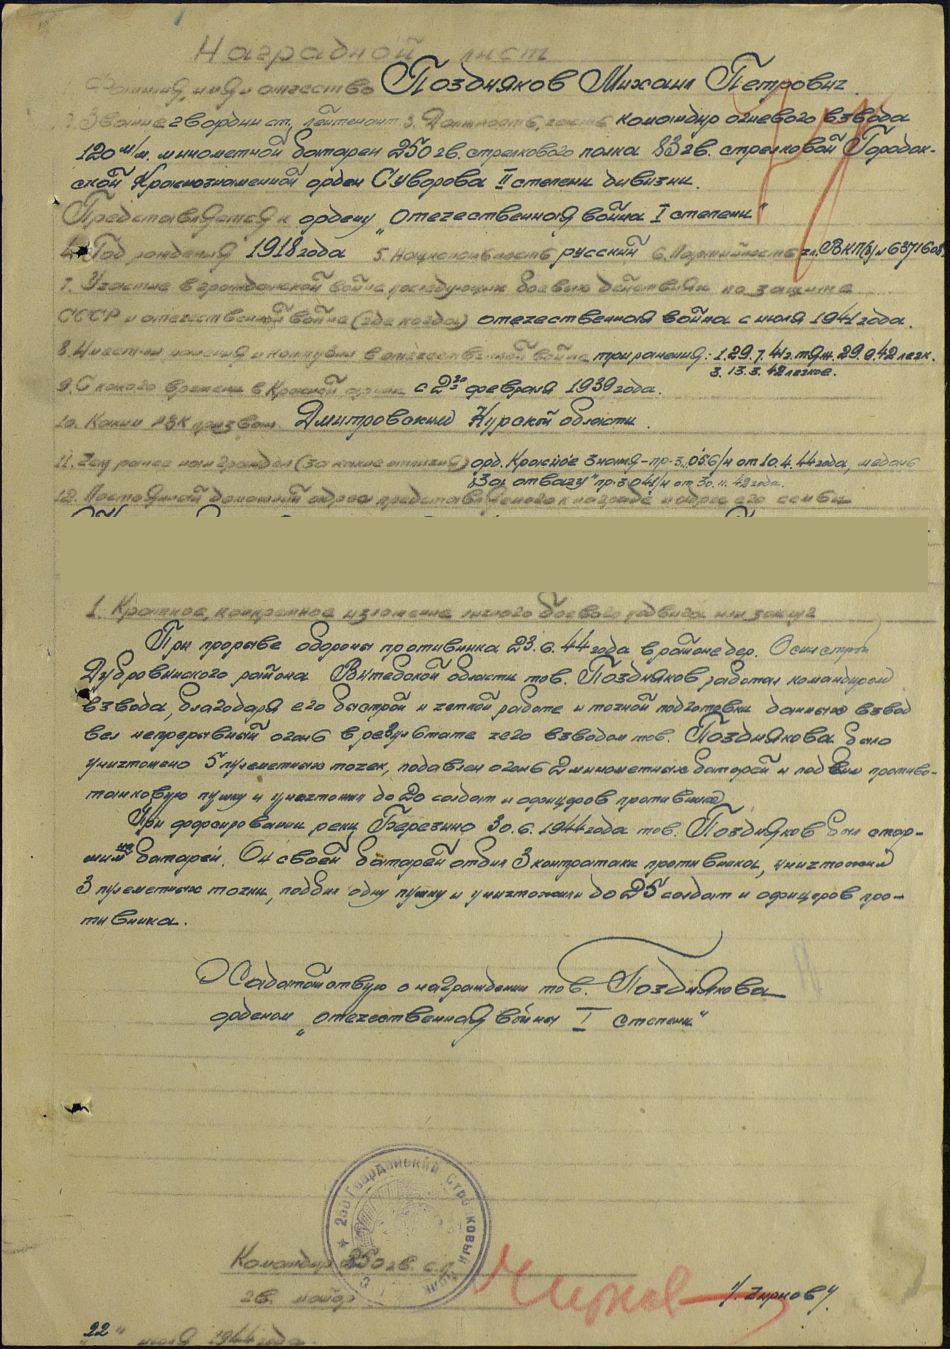 Наградной лист
Фамилия, имя и отчество Поздняков Михаил Петрович.
2. Звание гвардии ст. лейтенант 3. Должность, часть командир огневого взвода
120 м/м. минометной батареи 250 гв. стрелкового полка 83 гв. стрелковой Городок-
ской Краснознаменной орден Суворова II степени дивизии.
Представляется к ордену „отечественная война I степени"
4. Год рождения 1918 года 5. Национальность русский 6. Партийность чл. ВКП(б) № 6371608
7. Участие в гражданской войне, последующих боевых действиях по защите
СССР и отечественной войне (где когда) отечественная война с июля 1941 года.
8. Имеет ли ранения и контузии в отечественной войне три ранения: 1. 29.7.41 г. тяж. 29.9.42 легк.
3. 13.3.42 легкое.
9. С какого времени в Красной армии с 2 февраля 1939 года.
10. Каким РВК призван Дмитровским Курской области.
11. Чем ранее награжден (за какие отличия) орд. Красное Знамя - пр. 056/н от 10.4.44 года, медаль
„За отвагу" пр. 041/н от 30.11.42 года.
12. Постоянный домашний адрес представляемого к награде и адрес его семьи
1. Краткое, конкретное изложение личного боевого подвига или заслуг
При прорыве обороны противника 23.6.44 года в районе дер.
Дубровинского района Витебской области тов. Поздняков работал командиром
взвода, благодаря его быстрой и четкой работе и точной подготовки данных взвод
вел непрерывный огонь в результате чего взводом тов. Позднякова было
уничтожено 5 пулеметных точек, подавлен огонь 2 минометных батарей и подбил противо-
танковую пушку и уничтожил до 20 солдат и офицеров противника
При форсировании реки Березино 30.6.1944 года тов. Поздняков был стар-
шим на батареи. Он своей батареей отбил 3 контратаки противника, уничтожил
3 пулеметных точки, подбил одну пушку и уничтожили до 25 солдат и офицеров про-
тивника.
Ходатайствую о награждении тов. Позднякова
орденом „отечественная войны I степени"
250 Гвардейский Стрелковый Полк
Командир 250 гв. с.п.
гв. майор
Чирков /Чирков/
"22" июля 1944 года.